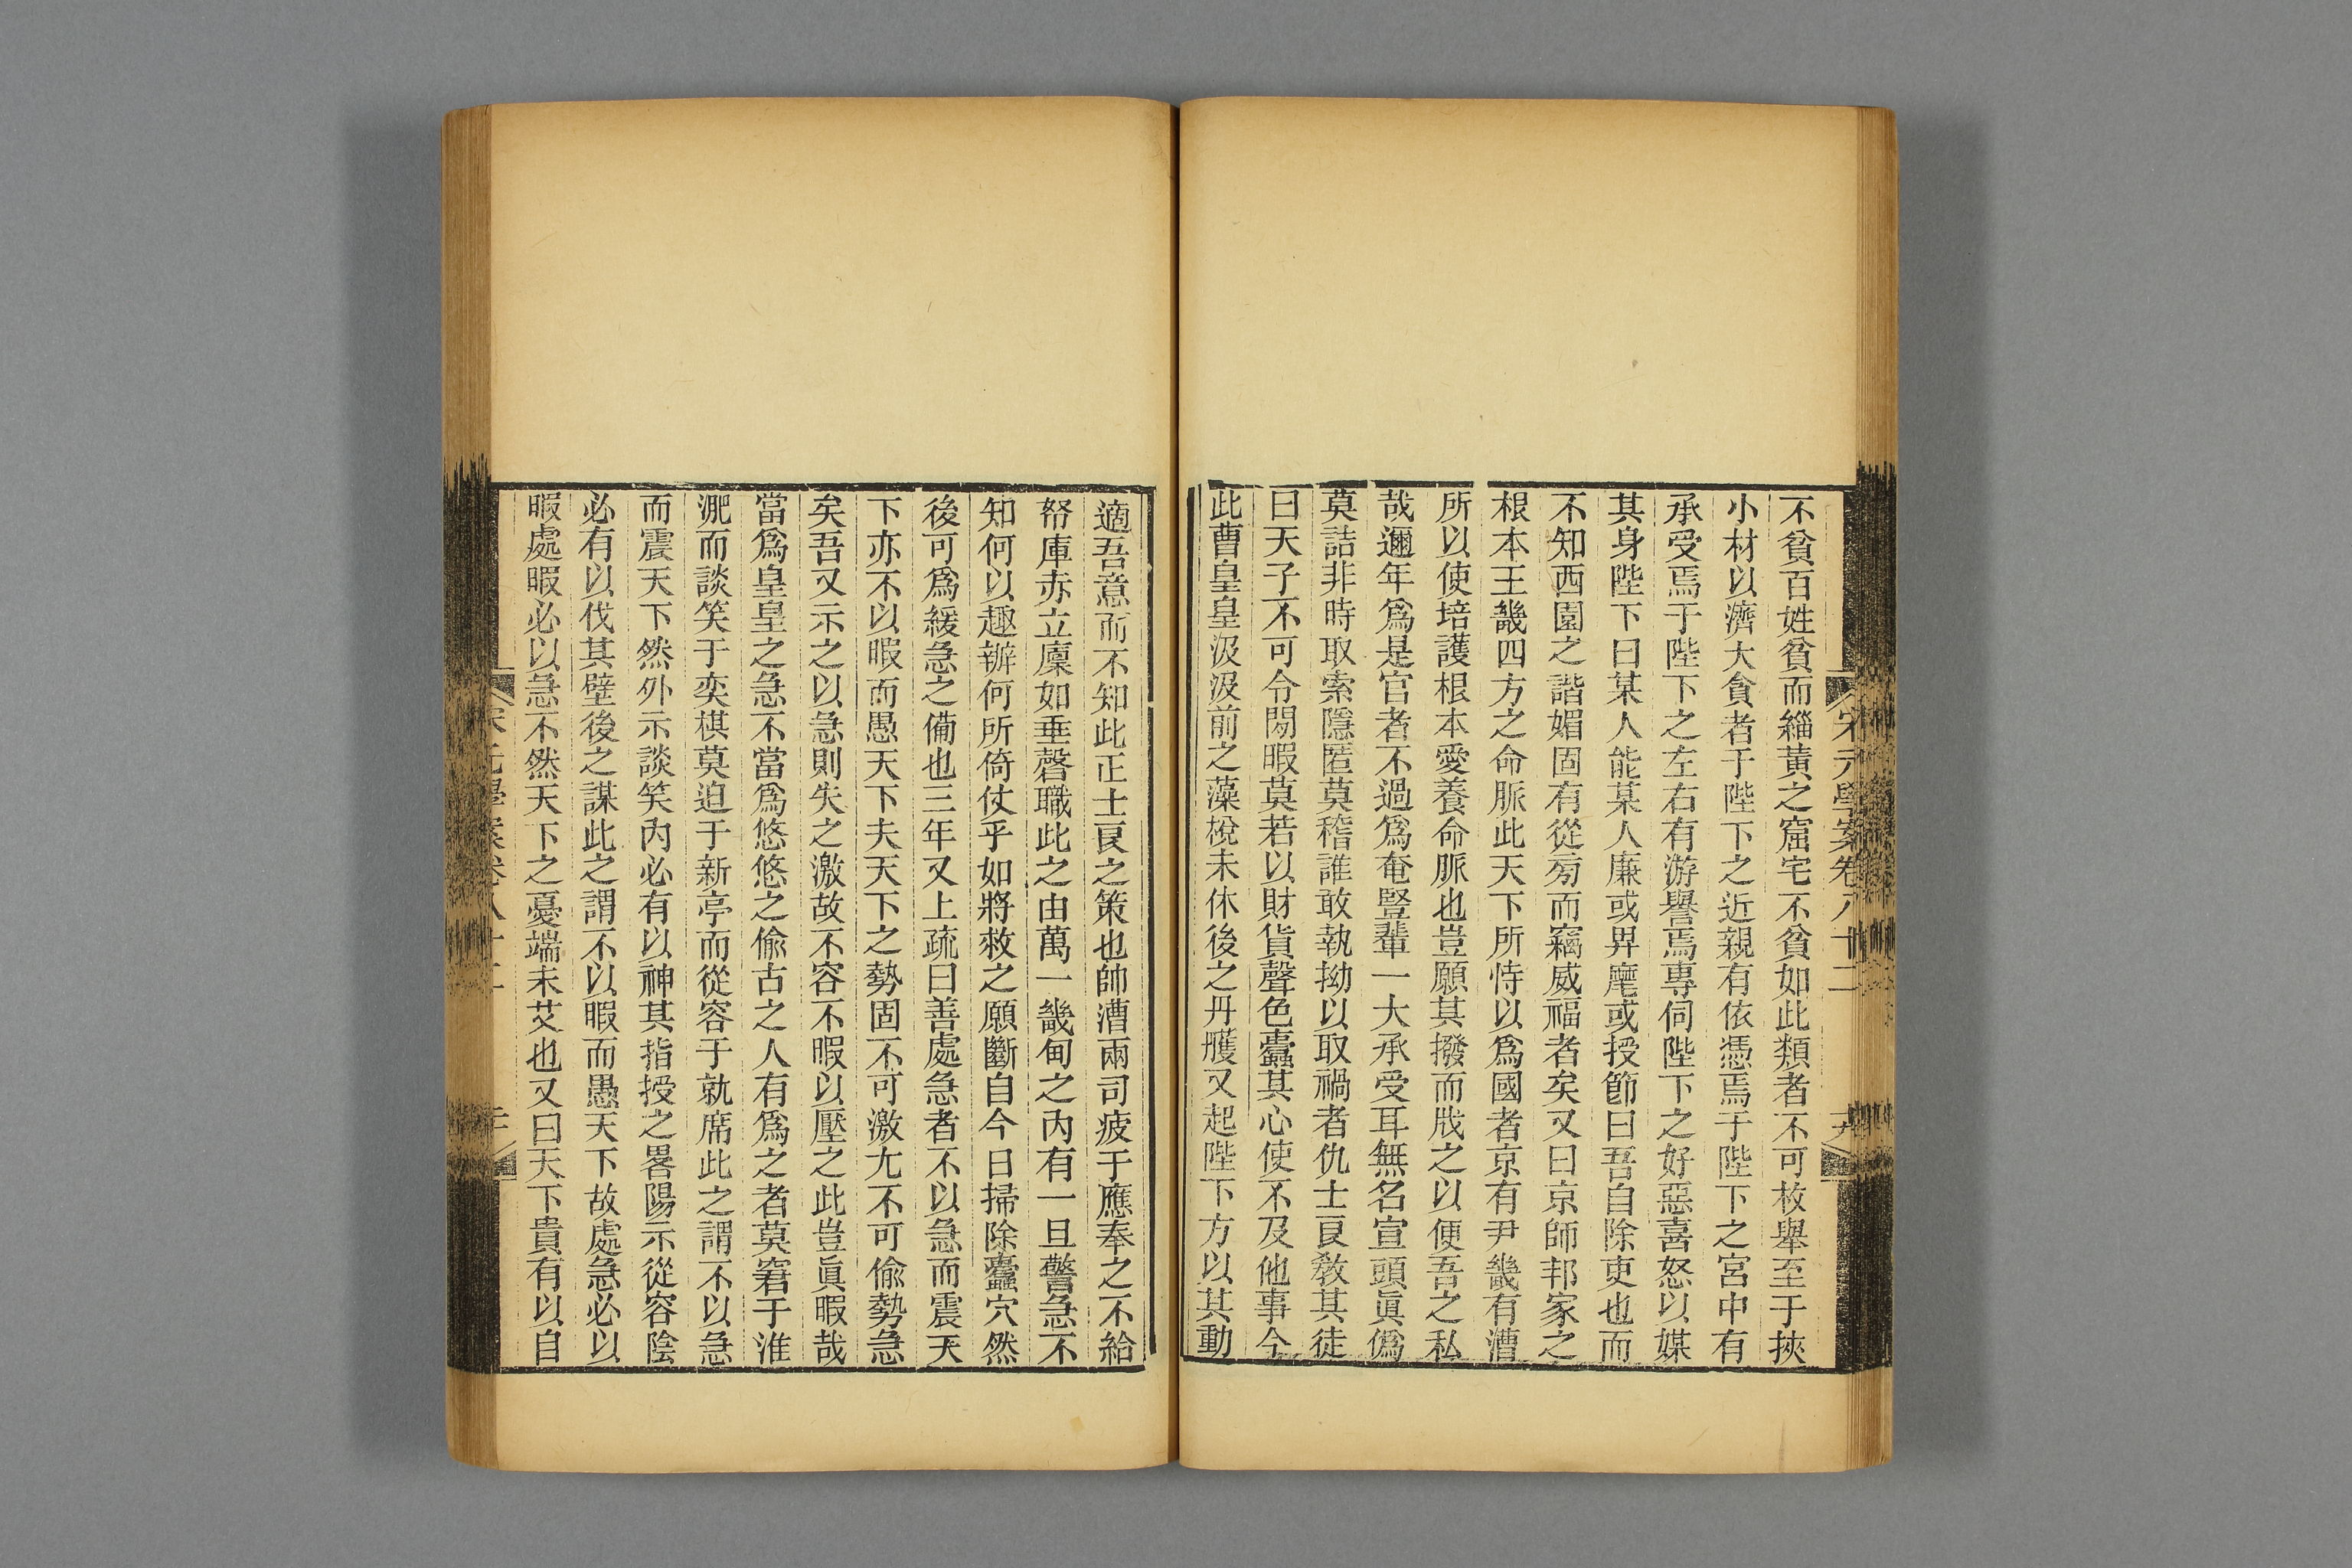 宋元學案卷八十二
十九
不貧百姓貧而緇黃之窟宅不貧如此類者不可枚舉至于挾
小材以濟大貪者于陛下之近親有依憑焉于陛下之宮中有
承受焉于陛下之左右有游譽焉專伺陛下之好惡喜怒以媒
其身陛下曰某人能某人廉或畀麾或授節曰吾自除吏也而
不知西園之諧媚固有從旁而竊威福者矣又曰京師邦家之
根本王畿四方之命脈此天下所恃以爲國者京有尹畿有漕
所以使培護根本愛養命脈也豈願其撥而戕之以便吾之私
哉邇年爲是官者不過爲奄豎輩一大承受耳無名宣頭眞僞
莫詰非時取索隱匿莫稽誰敢執拗以取禍者仇士良敎其徒
曰天子不可令閑暇莫若以財貨聲色蠹其心使不及他事今
此曹皇皇汲汲前之藻梲未休後之丹雘又起陛下方以其動
適吾意而不知此正士良之策也帥漕兩司疲于應奉之不給
帑庫赤立廩如垂罄職此之由萬一畿甸之內有一旦警急不
知何以趣辦何所倚仗乎如將救之願斷自今日掃除蠹穴然
後可爲緩急之備也三年又上疏曰善處急者不以急而震天
下亦不以暇而愚天下夫天下之勢固不可激尢不可偸勢急
矣吾又示之以急則失之激故不容不暇以壓之此豈眞暇哉
當爲皇皇之急不當爲悠悠之偸古之人有爲之者莫窘于淮
淝而談笑于奕棋莫迫于新亭而從容于就席此之謂不以急
而震天下然外示談笑內必有以神其指授之畧陽示從容陰
必有以伐其壁後之謀此之謂不以暇而愚天下故處急必以
暇處暇必以急不然天下之憂端未艾也又曰天下貴有以自